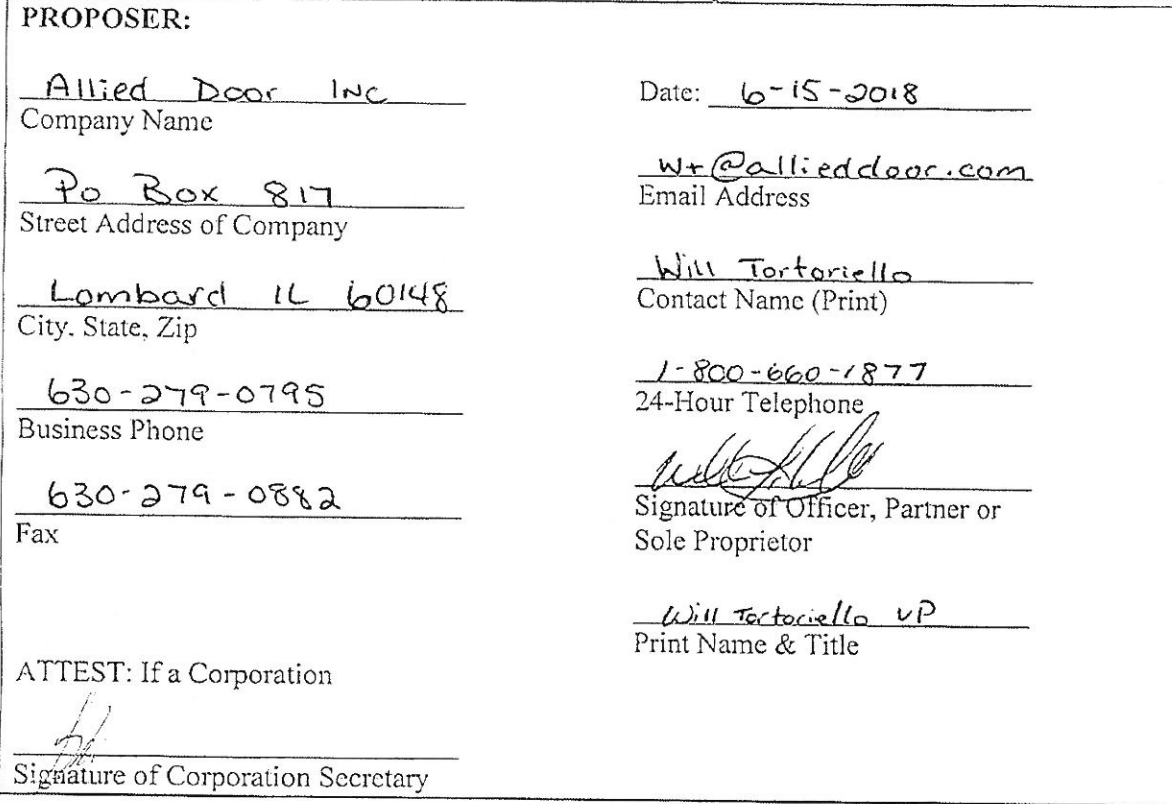 PROPOSER:
Allied Door INC
Company Name
Po Box 817
Street Address of Company
Lombard IL 60148
City, State, Zip
630-279-0795
Business Phone
630-279-0882
Fax
ATTEST: If a Corporation
Signature of Corporation Secretary
Date: 6-15-2018
wt@allieddoor.com
Email Address
Will Tortoriello
Contact Name (Print)
1-800-660-1877
24-Hour Telephone
Signature of Officer, Partner or
Sole Proprietor
Will Tortoriello VP
Print Name & Title